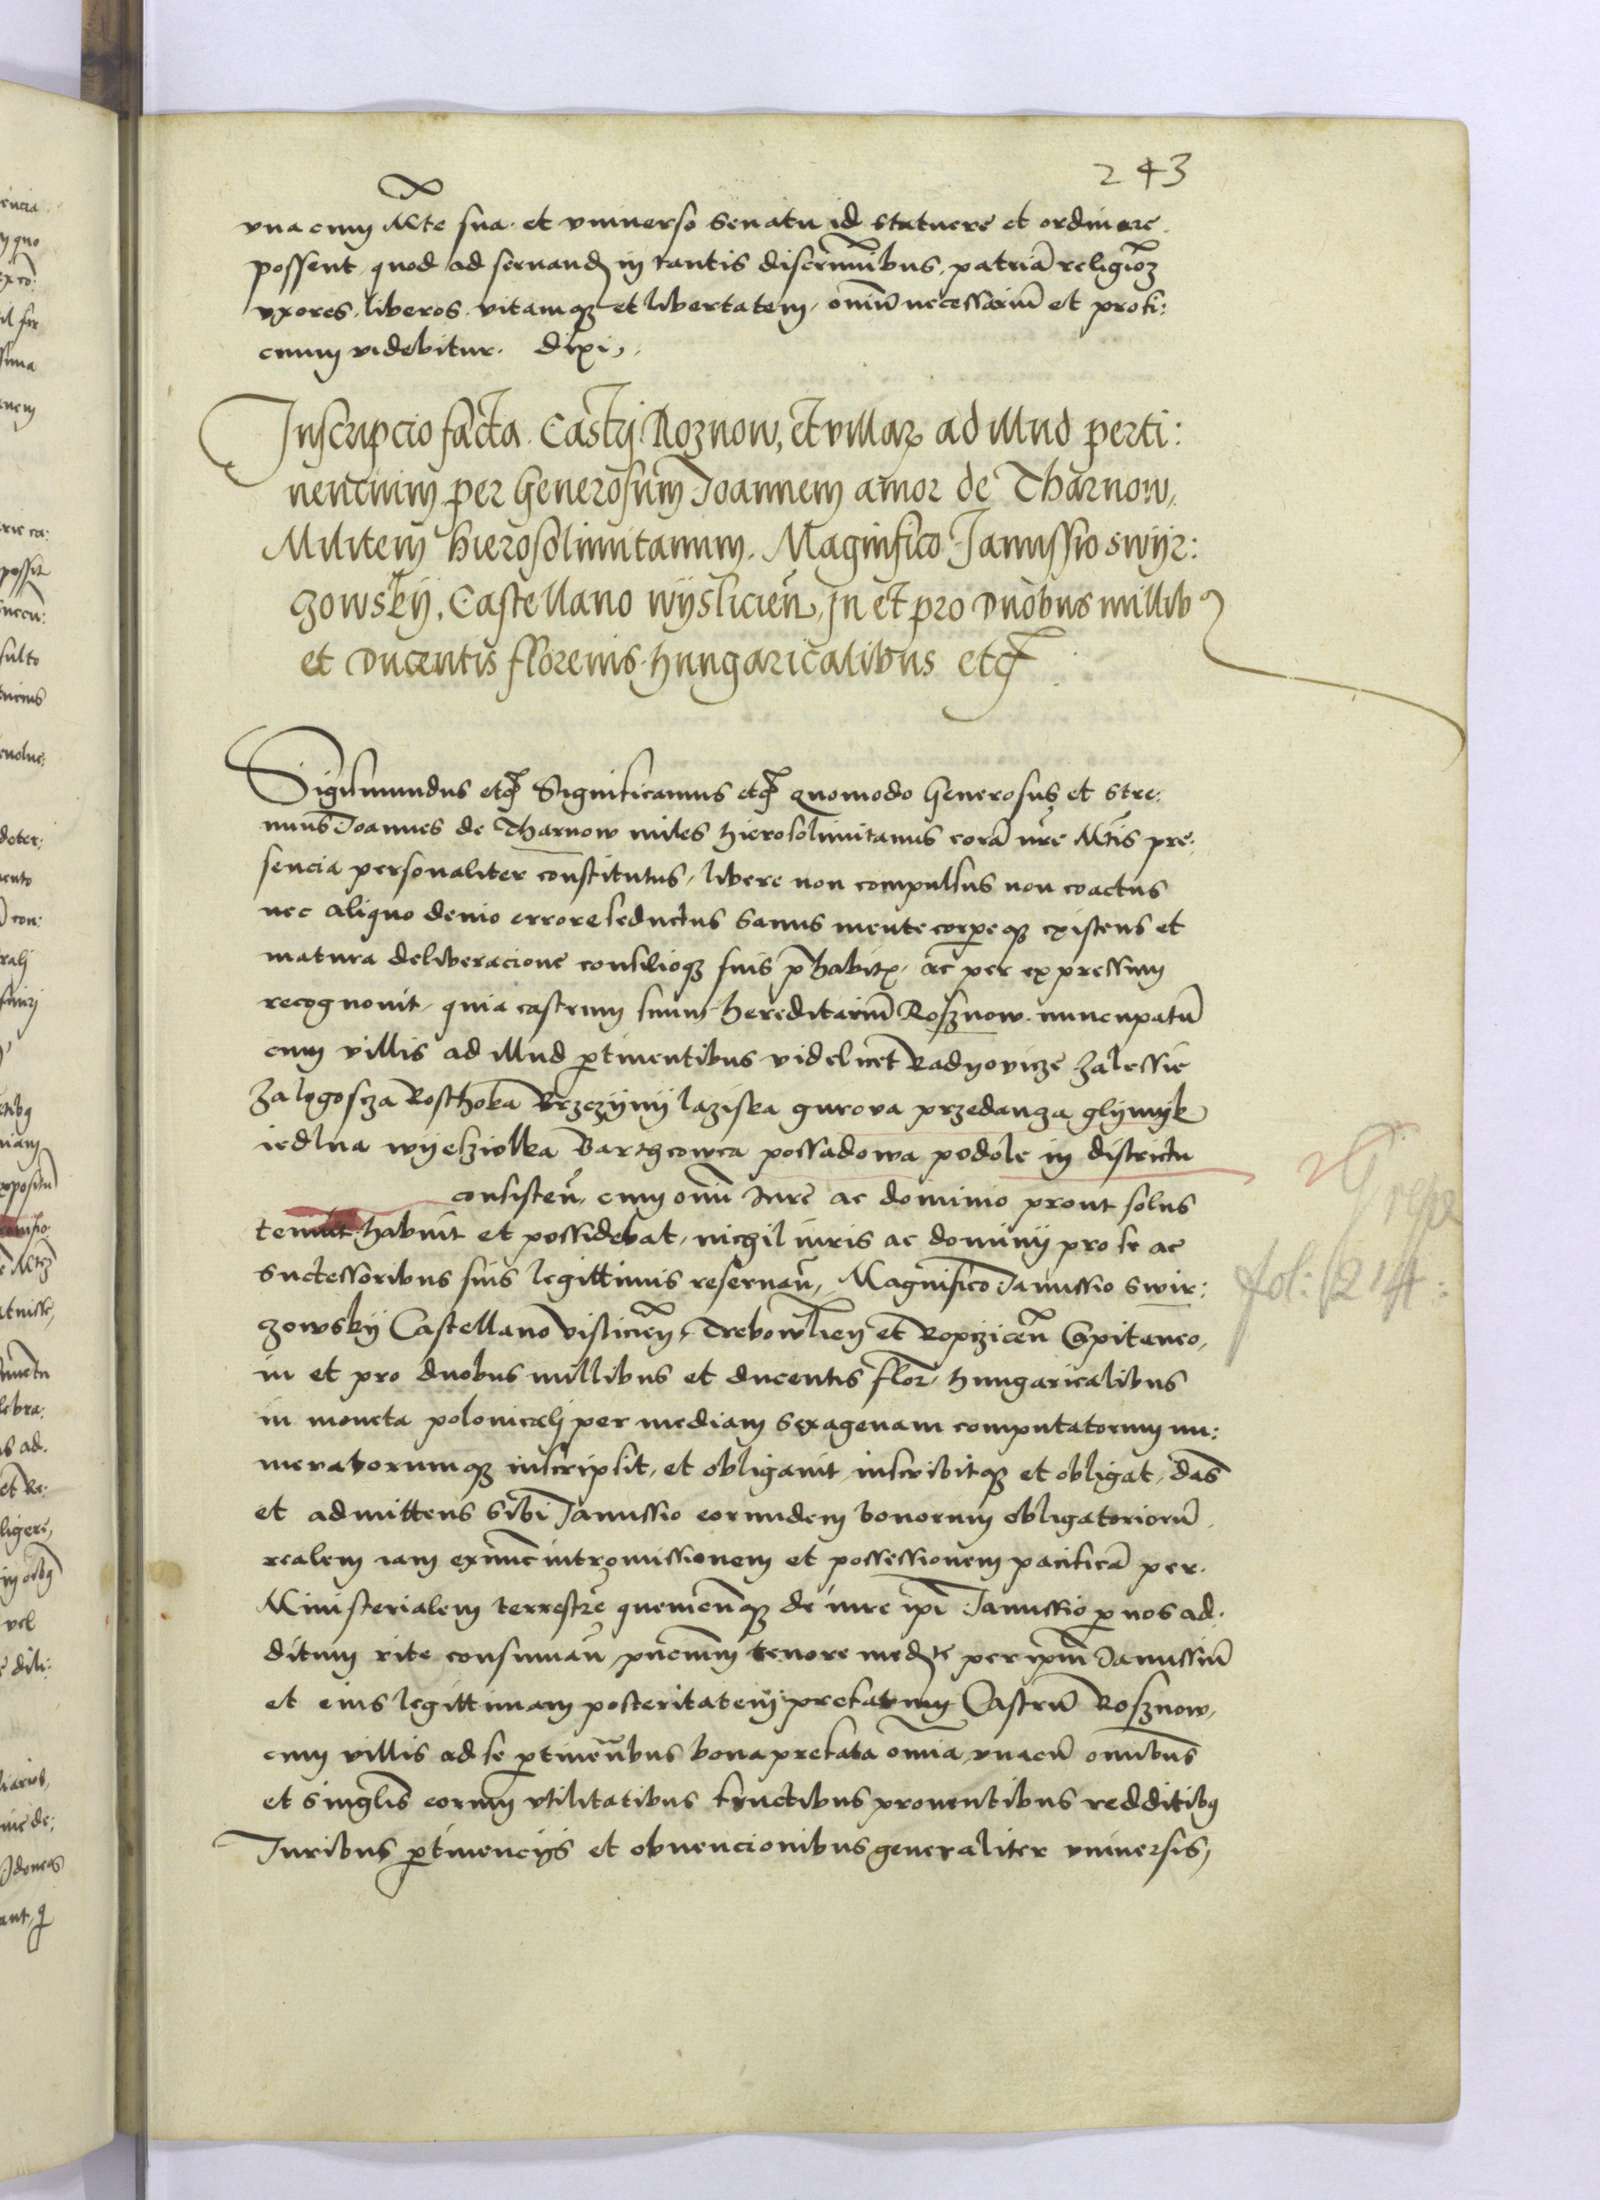 243
vna cum Mte sua. et vniuerso Senatu id statuere et ordinare.
possent, quod ad seruand in tantis discriminibus, patriā religiōz
vxores, liberos, vitamqz et libertatem, omniū necessariū et profi:
cuum videbitur. dixi,.
Inscripcio facta. Castrj. Roznow, et villarz ad illud perti:
nencium per Generosum Joannem amor de Tharnow,
Militem hierosolimitanum. Magnifico Janussio swijr:
zowskij. Castellano wyslicieñ, jn et pro duobus millib9
et ducentis florenis hungaricalibus etc
Sigismundus etc Significamus etc quomodo Generosus et Stre:
nuus Joannes de Tharnow miles hierosolimitanus corā nre Mtis pre:
sencia personaliter constitutus, libere non compulsus non coactus
nec aliquo deuio errore seductus sanus mente corpeqz existens et
matura deliberacione consilioqz suis p̄habitz, ac per expressum
recognouit, quia castrum suum hereditariū Rosznow nuncupatū
cum villis ad illud ptinentibus videlicet Radyovicze zalessie
zalogoscza Rosthoka Brzezijnij laziska gurova przedanza glijnijk
iedlna wijesziolka Barthcowca possadowa podole in districtu
consisteñ, cum omni Jure ac dominio prout solus
tenuit habuit et possidebat, nichil iuris ac dominij pro se ac
successoribus suis legittimis reseruañ, Magnifico Janussio swir:
zowskij Castellano vislicieñ, Trebowlieñ et Ropczicēn Capitaneo,
in et pro duobus millibus et ducentis flor, hungaricalibus
in moneta polonicalj per mediam sexagenam computatorum nu:
meratorumqz inscripsit, et obligauit inscribitqz et obligat, dās
et admittens sibi Janussio eorundem bonorum obligatoriorū
realem iam exnunc intromissionem et possessionem pacificā per.
Ministerialem terrestrē quemcunqz de iure ipi Janussio p nos ad.
ditum rite consumañ, pncium tenore medte per ipm Janussiū
et eius legittimam posteritatem prefatum Castrū Rosznow,
cum villis ad se ptinentibus bona prefata omnia, vnacū omnibus
et singlis eorum vtilitatibus fructibus prouentibus redditib9
Juribus ptinencijs et obuencionibus generaliter vniuersis,
fol: 214: